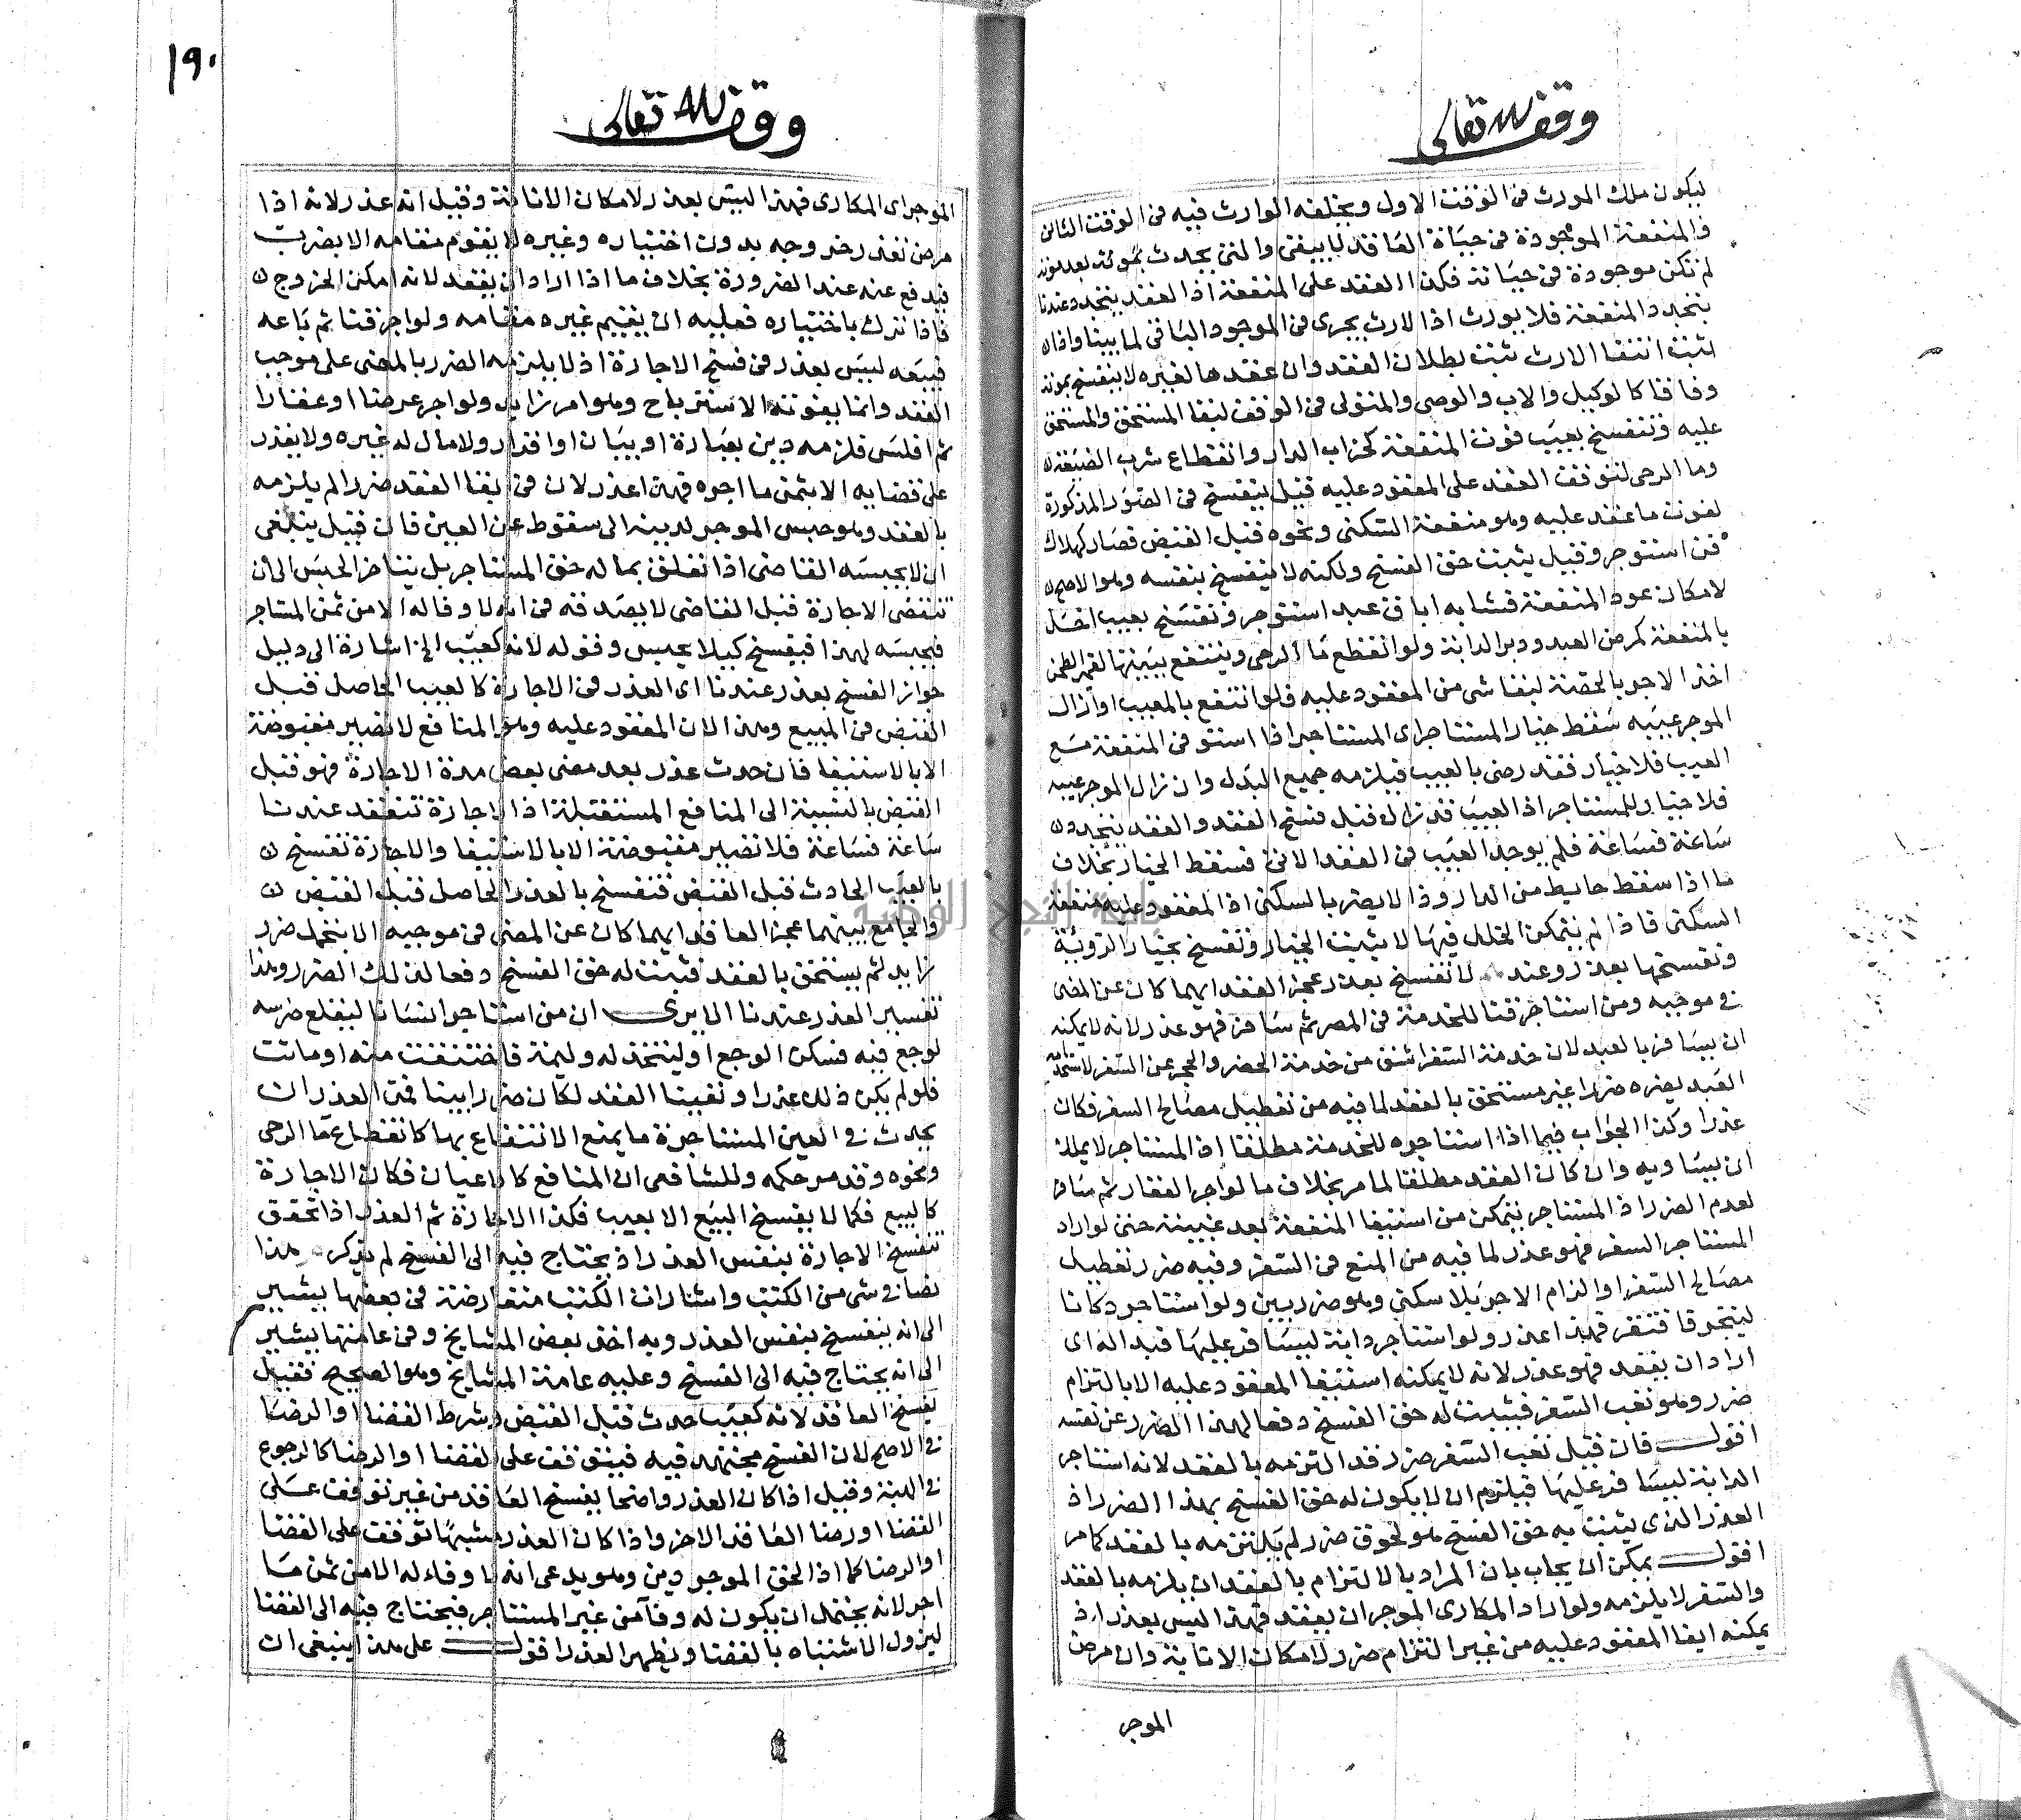 وقف لله تعالى
ليكون ملك المورث في الوقت الاول ويخلفه الوارث فيه في الوقت الثاني
والمنفعة الموجودة في حياة العاقد لا يبقى والتي يحدث بموته بعد موته
لم تكن موجودة في حياته فكذا العقد على المنفعة اذ العقد يتجدد عندنا
بتجدد المنفعة فلا يورث اذ الارث يجري في الموجود الباقي لما بينا واذا
ثبت انتفا الارث ثبت بطلان العقد وان عقدها لغيره لا ينفسخ بموته
وفاقا كالوكيل والاب والوصي والمتولي في الوقف لبقا المستحق والمستحق
عليه وتنفسخ بعيب فوت المنفعة كخراب الدار وانقطاع شرب الضيعة
وما الرحى لتوقف العقد على المعقود عليه قيل ينفسخ في الصور المذكورة
لفوت ما عقد عليه وهو منفعة السكنى ونحوه قبل القبض فصار كهلاك
قن استوجر وقيل يثبت حق الفسخ ولكنه لا ينفسخ بنفسه وهو الاصح
لامكان عود المنفعة فشابه اباق عبد استوجر وتفسخ بعيب اخل
بالمنفعة كمرض العبد ودبر الدابة ولو انقطع ما الرحى وينتفع ببيتها لغير الطحن
اخذ الاجر بالحصة لبقا شي من المعقود عليه فلو انتفع بالمعيب او ازال
الموجر عيبه سقط خيار المستاجر اي المستاجر اذا استوفى المنفعة مع
العيب فلا خيار فقد رضي بالعيب فيلزمه جميع البدل وان زال الموجر عيبه
فلا خيار للمستاجر اذ العيب قد زال قبل فسخ العقد والعقد يتجدد
ساعة فساعة فلم يوجد العيب في العقد الاتي فسقط الخيار بخلاف
ما اذا سقط حايط من الدار وذا لا يضر بالسكنى اذ المعقود عليه منفعة
السكنى فاذا لم يتمكن الخلل فيها لا يثبت الخيار وتفسخ بخيار الروية
ونفسخها بعذر وعند لا تفسخ بعذر عجز العقد ايهما كان عن المضي
في موجبه ومن استاجر قنا للخدمة في المصر ثم سافر فهو عذر لانه لا يمكنه
ان يسافر بالعبد لان خدمة السفر اشق من خدمة الحضر والحجر عن السفر لاستخدامه
العبد يضره ضررا غير مستحق بالعقد لما فيه من تعطيل مصالح السفر فكان
عذرا وكذا الجواب فيما اذا استاجره للخدمة مطلقا اذ المستاجر لا يملك
ان يسافر به وان كان العقد مطلقا لما مر بخلاف ما لو اجر العقار ثم سافر
لعدم الضرر اذ المستاجر يتمكن من استيفا المنفعة بعد غيبته حتى لو اراد
المستاجر السفر فهو عذر لما فيه من المنع في السفر وفيه ضرر تعطيل
مصالح السفر او الزام الاجر بلا سكنى وهو ضرر بين ولو استاجر دكانا
ليتجر فافتقر فهذا عذر ولو استاجر دابة ليسافر عليها فبدا له اي
اراد ان يقعد فهو عذر لانه لا يمكنه استيفا المعقود عليه الا بالتزام
ضرر وهو تعب السفر فيثبت له حق الفسخ دفعا لهذا الضرر عن نفسه
اقول فان قيل تعب السفر ضرر قد التزمه بالعقد لانه استاجر
الدابة ليسافر عليها فيلزم ان لا يكون له حق الفسخ بهذا الضرر اذ
العذر الذي يثبت به حق الفسخ هو لحوق ضرر لم يلتزمه بالعقد كما مر
اقول يمكن ان يجاب بان المراد بالالتزام بالعقد ان يلزمه بالعقد
والسفر لا يلزمه ولو اراد المكاري الموجر ان يقعد فهذا ليس بعذر اذ
يمكنه ايفا المعقود عليه من غير التزام ضرر لامكان الانابة وان مرض
الموجر
١٩٠
وقف لله تعالى
الموجر اي المكاري فهذا ليس بعذر لامكان الانابة وقيل انه عذر لانه اذا
مرض تعذر خروجه بدون اختياره وغيره لا يقوم مقامه الا بضرر
فيدفع عنه عند الضرورة بخلاف ما اذا اراد ان يقعد لانه امكن الخروج
فاذا ترك باختياره فعليه ان يقيم غيره مقامه ولو اجر قنا ثم باعه
فبيعه ليس بعذر في فسخ الاجارة اذ لا يلزمه الضرر بالمضي على موجب
العقد وانما يفوته الاسترباح وهو امر زايد ولو اجر عرضا او عقارا
ثم افلس فلزمه دين بعيارة او بيان او اقرار ولا مال له غيره ولا يقدر
على قضايه الا بثمن ما اجره فهذا عذر لان في ابقا العقد ضررا لم يلزمه
بالعقد وهو حبس الموجر لدينه الى سقوط عن العين فان قيل ينبغي
ان لا يحبسه القاضي اذا تعلق بماله حق المستاجر بل يتاخر الحبس الى ان
تنقضي الاجارة قبل القاضي لا يصدقه في انه لا وفا له الا من ثمن المستاجر
فيحبسه لهذا فيفسخ كيلا يحبس وقوله لانه كعيب الخ اشارة الى دليل
جواز الفسخ بعذر عندنا اي العذر في الاجارة كالعيب الحاصل قبل
القبض في المبيع وهذا لان المعقود عليه وهو المنافع لا تصير مقبوضة
الا بالاستيفا فان حدث عذر بعد مضي بعض مدة الاجارة فهو قبل
القبض بالنسبة الى المنافع المستقبلة اذ الاجارة تنعقد عندنا
ساعة فساعة فلا تصير مقبوضة الا بالاستيفا والاجارة تفسخ
بالعيب الحادث قبل القبض فتفسخ بالعذر الحاصل قبل القبض
والجامع بينهما عجز العاقد ايهما كان عن المضي في موجبه الا بتحمل ضرر
زايد لم يستحق بالعقد فيثبت له حق الفسخ دفعا لذلك الضرر وهذا
تفسير العذر عندنا الا يرى ان من استاجر انسانا ليقلع ضرسه
لوجع فيه فسكن الوجع او ليتخذ له وليمة فاختلعت منه او ماتت
فلو لم يكن ذلك عذرا وتقينا العقد لكان ضررا بينا فمن العذر ان
يحدث في العين المستاجرة ما يمنع الانتفاع بها كانقطاع ما الرحى
ونحوه وقد مر حكمه وللشافعي ان المنافع كالاعيان فكان الاجارة
كالبيع فكما لا يفسخ البيع الا بعيب فكذا الاجارة ثم العذر اذا تحقق
تنفسخ الاجارة بنفس العذر اذ يحتاج فيه الى الفسخ لم يذكر هذا
نصا في شي من الكتب واشارات الكتب متعارضة في بعضها يشير
الى انه ينفسخ بنفس العذر وبه اخذ بعض المشايخ وفي عامتها يشير
الى انه يحتاج فيه الى الفسخ وعليه عامة المشايخ وهو الصحيح فقيل
يفسخ العاقد لانه كعيب حدث قبل القبض وشرط القضا او الرضا
في الاصح لان الفسخ مجتهد فيه فيتوقف على القضا او الرضا كالرجوع
في الهبة وقيل اذا كان العذر واضحا يفسخ العاقد من غير توقف على
القضا او رضا العاقد الاخر واذا كان العذر مشتبها توقف على القضا
او الرضا كما اذا لحق الموجر دين وهو يدعي انه لا وفاء له الا من ثمن ما
اجر لانه يحتمل ان يكون له وفا من غير المستاجر فيحتاج فيه الى القضا
ليزول الاشتباه بالقضا ويظهر العذر اقول على هذا ينبغي ان
جامعة النجاح الوطنية